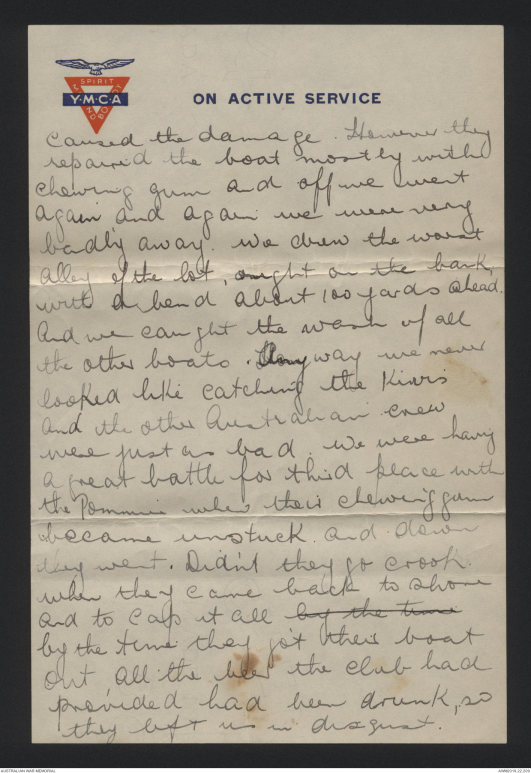 SPIRIT
MIND
BODY
Y·M·C·A
ON ACTIVE SERVICE
caused the damage. However they
repaired the boat mostly with
chewing gum and off we went
again and again we were very
badly away. We drew the worst
alley of the lot, right on the bank,
with a bend about 100 yards ahead.
And we caught the wash of all
the other boats. Anyway we never
looked like catching the Kiwis
and the other Australian crew
were just as bad. We were having
a great battle for third place with
the Pommies when their chewing gum
became unstuck and down
they went. Didn't they go crook
when they came back to shore
and to cap it all by the time
by the time they got their boat
out all the beer the club had
provided had been drunk, so
they left us in disgust.
AUSTRALIAN WAR MEMORIAL